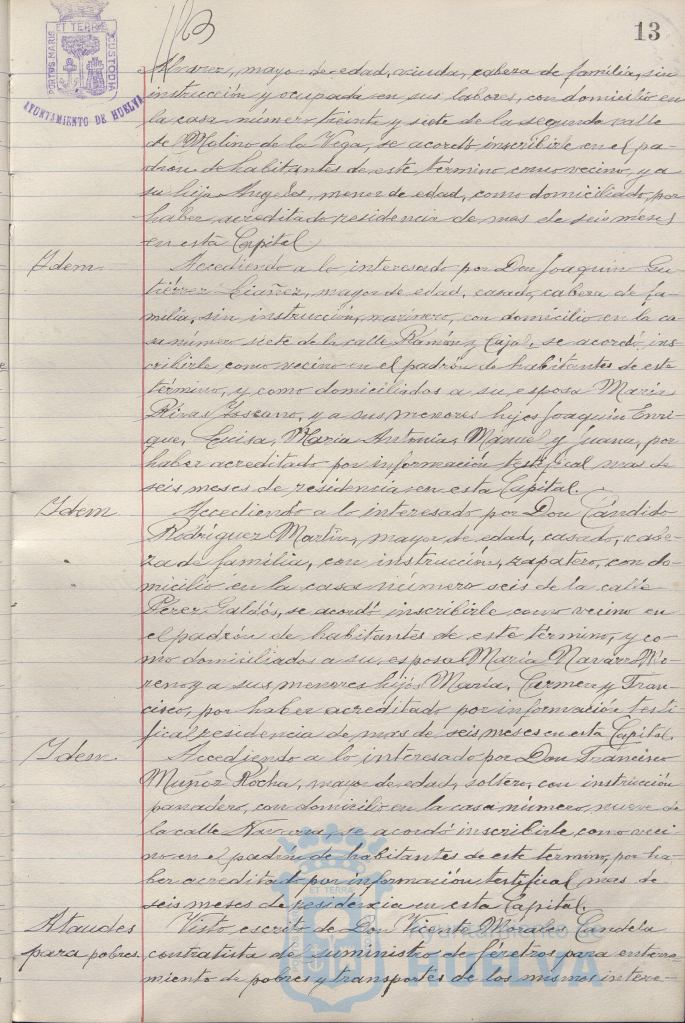 13
PORTUS MARIS ET TERRÆ CUSTODIA
AYUNTAMIENTO DE HUELVA
Alvarez, mayor de edad, viuda, cabeza de familia, sin
instrucción y ocupada en sus labores, con domicilio en
la casa número veinte y siete de la segunda calle
de Molino de la Vega, se acordó inscribirle en el pa-
drón de habitantes de este término como vecino, y a
su hija Angeles, menor de edad, como domiciliado, por
haber acreditado residencia de mas de seis meses
en esta Capital
Idem.
Accediendo a lo interesado por Don Joaquin Gu-
tiérrez mayor de edad, casado, cabeza de fa-
milia, sin instrucción, marinero, con domicilio en la ca-
sa número siete de la calle Ramón y Cajal, se acordó ins-
cribirle como vecino en el padrón de habitantes de este
término, y como domiciliados a su esposa Maria
Rivas Toscano, y a sus menores hijos Joaquin, Enri-
que, Luisa, María Antonia, Manuel y Juana, por
haber acreditado por información testifical mas de
seis meses de residencia en esta Capital.
Idem
Accediendo a lo interesado por Don Cándido
Rodríguez Martín, mayor de edad, casado, cabe-
za de familia, con instrucción, zapatero, con do-
micilio en la casa número seis de la calle
Pérez Galdós, se acordó inscribirle como vecino en
el padrón de habitantes de este término, y co-
mo domiciliados a su esposa María Navarro Mo-
reno y a sus menores hijos María, Carmen y Fran-
cisco, por haber acreditado por información testi-
fical residencia de mas de seis meses en esta Capital.
Idem.
Accediendo a lo interesado por Don Francisco
Muñoz Rocha, mayor de edad, soltero, con instrucción
panadero, con domicilio en la casa número nueve de
la calle Navarra, se acordó inscribirle como veci-
no en el padrón de habitantes de este termino, por ha-
ber acreditado por información testifical mas de
seis meses de residencia en esta Capital.
Ataudes
para pobres.
Visto escrito de Don Vicente Morales Candela
contratista de suministro de féretros para enterra-
miento de pobres y transportes de los mismos intere-
HUELVA